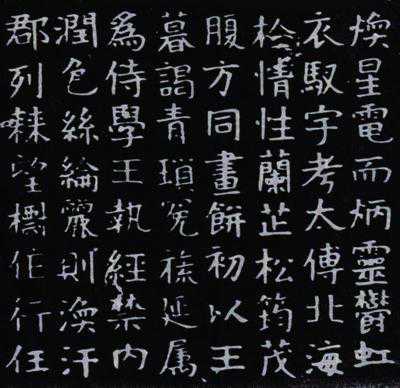 煥星電而炳靈鬱虹
衣馭字考太傅北海
扵情性蘭芷松筠茂
腹方同畫餅初以王
暮謁青瑣冕旒延属
為侍學王執經禁內
潤色絲綸麗則渙汗
郡列棘望標作行任